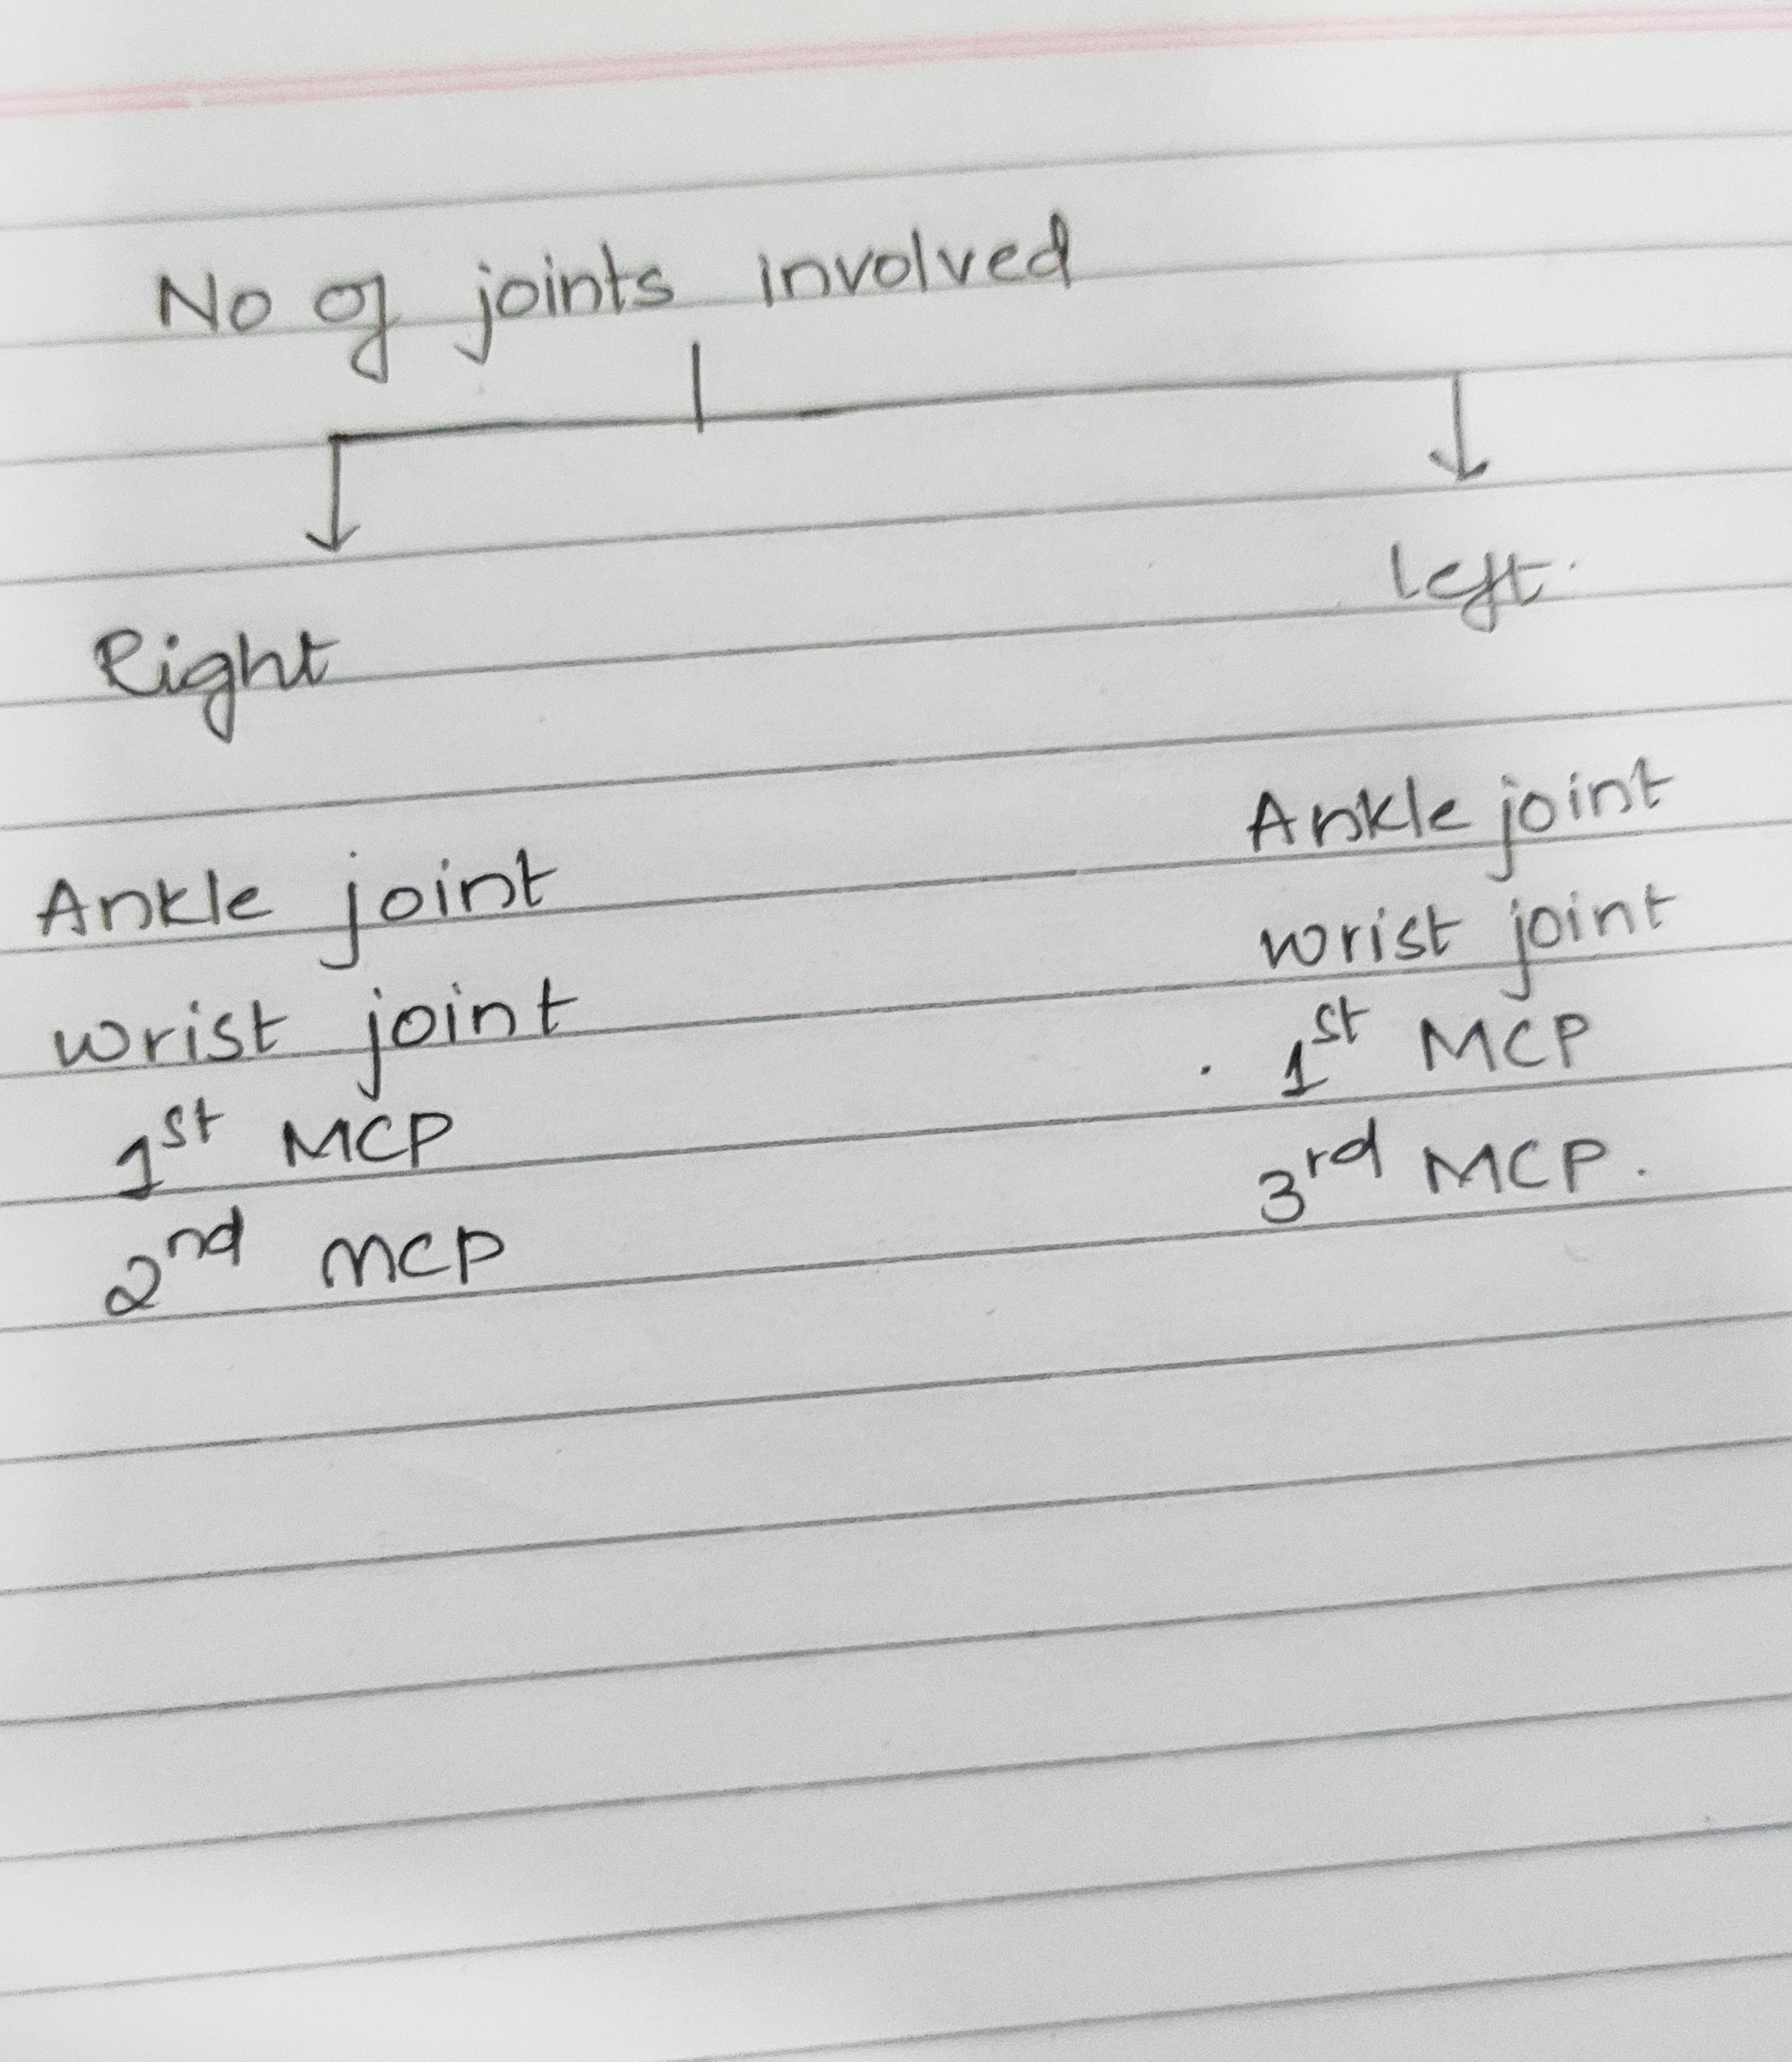 No of joints involved
Right
left.
Ankle joint
wrist joint
1st MCP
2nd MCP
Ankle joint
wrist joint
1st MCP
3rd MCP.